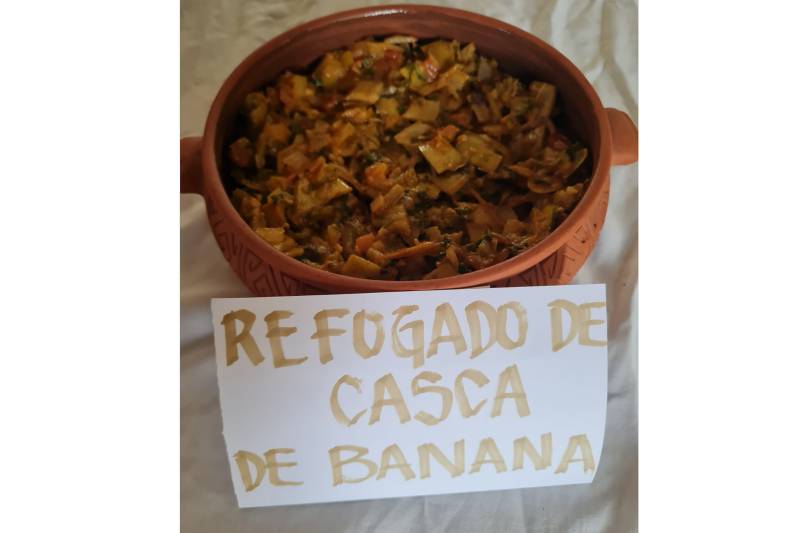 REFOGADO DE
CASCA
DE BANANA